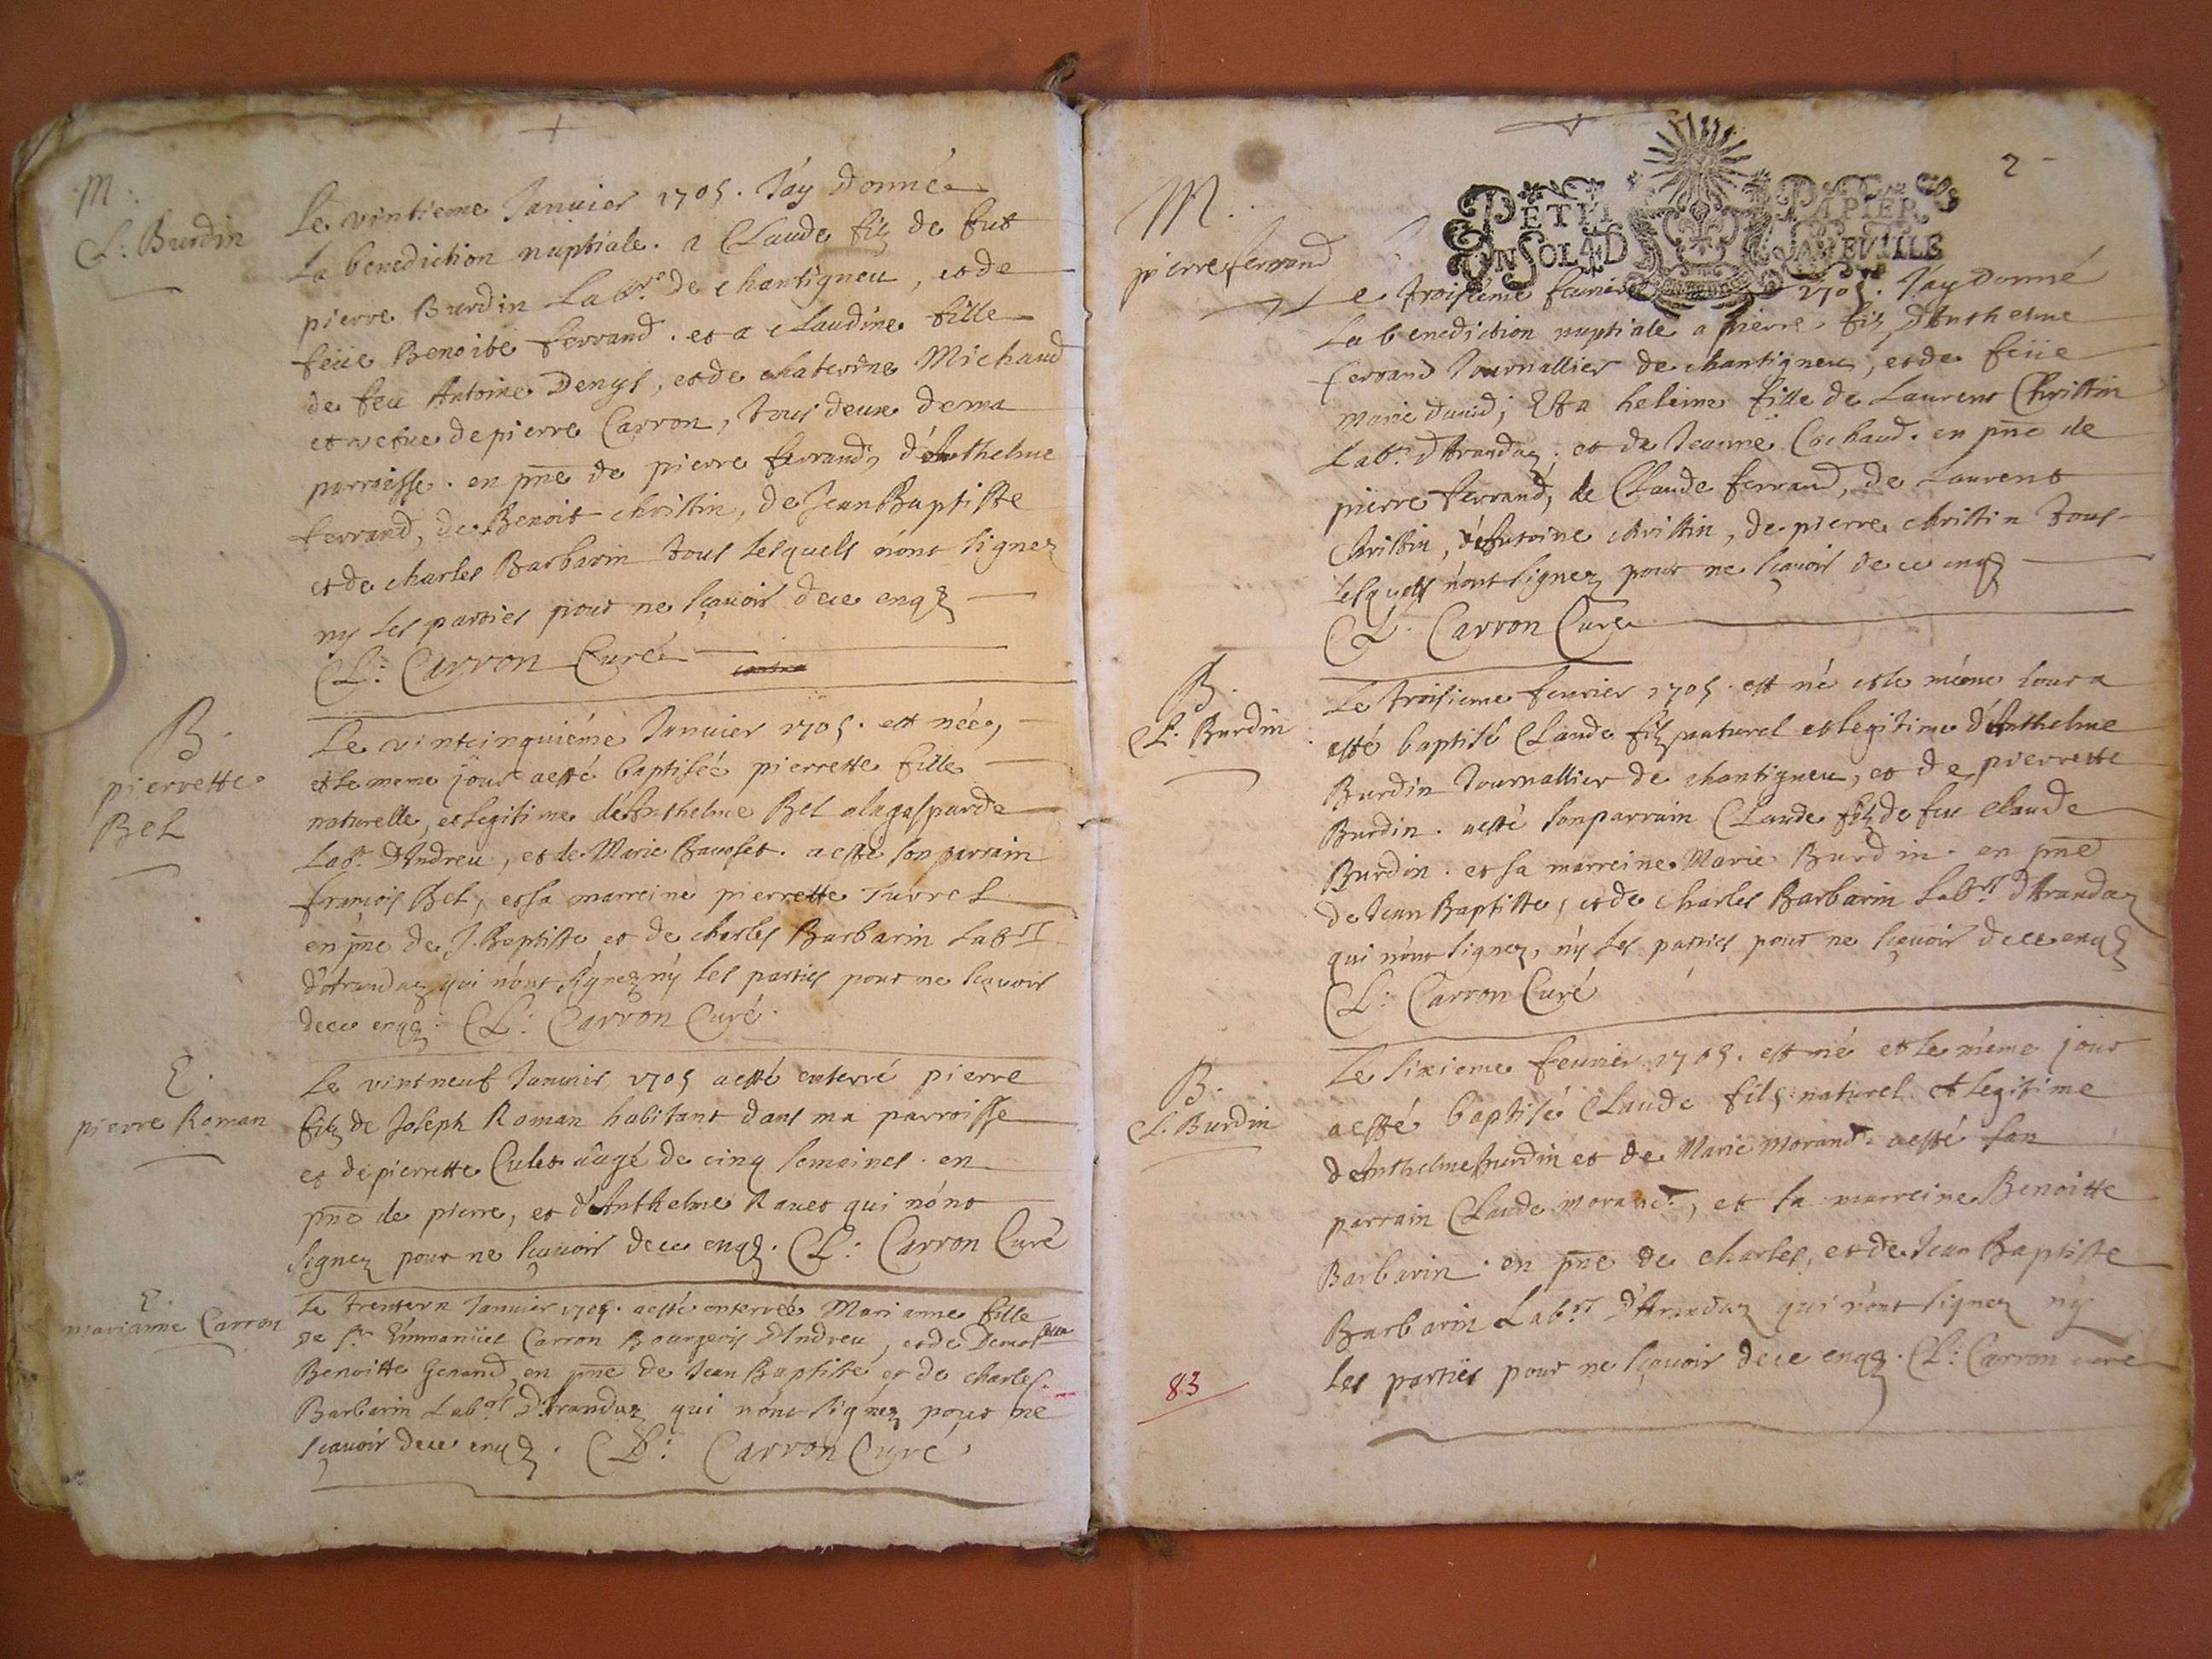 M:
Cl: Burdin
Le vintieme Januier 1705. J'ay donné
La benediction nuptiale. a Claude filz de fut
pierre Burdin Labr. de chantigneu, et de
feüe Benoite ferrand. et a claudine fille
de feu Antoine Denys, et de chaterine Michaud
et vefue de pierre Carron, tous deux de ma
parroisse. en pñe de pierre ferrand, d'Anthelme
ferrand, de Benoit christin, de Jean Baptiste
et de charles Barbarin tous lesquels n'ont signez
ny les parties pour ne sçauoir de ce enqz
Cl: Carron Curé
B.
pierrette
Bel
Le vintcinquiéme Januier 1705. est née,
et le meme jour a esté baptisée pierrette fille
naturelle, et legitime d'Anthelme Bel alagaspurde
Labr. d'Andreu, et de Marie . a esté son parrain
françois Bel, et sa marreine pierrette Jurrel
en pñe de J. Baptiste et de charles Barbarin Labrs
d'Arandaz qui n'ont signez ny les parties pour ne sçauoir
de ce enqz. Cl: Carron Curé.
E.
pierre Roman
Le vintneuf Januier 1705 a esté enterré pierre
filz de Joseph Roman habitant dans ma parroisse
et de pierrette Culet aâgé de cinq semaines. en
pñe de pierre, et d'Anthelme Rauet qui n'ont
signez pour ne sçauoir de ce enqz. Cl: Carron Curé
E.
marianne Carron
Le trenteun Januier 1705. a esté enterrée Marianne fille
de Sr. Emmanüel Carron Bourgeois d'Andreu, et de Demoiselle
Benoitte Genand, en pñe de Jean Baptiste et de charles
Barbarin Labrs d'Arandaz qui n'ont signez pour ne
sçauoir de ce enqz. Cl: Carron Curé.
2
PETIT PAPIER
UN SOL 4 D LA FEVILLE
M.
pierre ferrand
Le troisieme feurier 1705. J'ay donné
La benediction nuptiale a pierre filz d'Anthelme
ferrand Journallier de chantigneu, et de feüe
Marie dauid; Et a heleine fille de Laurent Christin
Labr. d'Arandaz; et de Jeanne Cochaud. en pñe de
pierre ferrand, de Claude ferrand, de Laurent
Christin, d'Antoine christin, de pierre christin tous
lesquels n'ont signez pour ne sçauoir de ce enqz
Cl. Carron Curé
B.
Cl. Burdin
Le troisieme feurier 1705. est né et le méme Jour a
esté baptisé Claude filz naturel et legitime d'Anthelme
Burdin Journallier de chantigneu, et de pierrette
Burdin. a esté son parrain Claude filz de feu claude
Burdin. et sa marreine Marie Burdin. en pñe
de Jean Baptiste, et de charles Barbarin Labrs d'Arandaz
qui n'ont signez, ny les parties pour ne sçauoir de ce enqz
Cl: Carron Curé
B.
Cl. Burdin
Le sixieme feurier 1705. est né et le méme jour
a esté baptisé Claude fils naturel et legitime
d'Anthelme Burdin et de Marie Morand. a esté son
parrain Claude Morand, et sa marreine Benoitte
Barbarin. en pñe de charles, et de Jean Baptiste
Barbarin Labrs d'Arandaz qui n'ont signez ny
les parties pour ne sçauoir de ce enqz. Cl: Carron curé
83